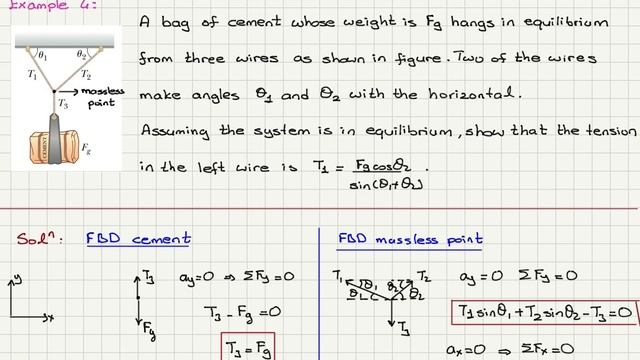 Example 4:
A bag of cement whose weight is Fg hangs in equilibrium
from three wires as shown in figure. Two of the wires
make angles θ1 and θ2 with the horizontal.
Assuming the system is in equilibrium, show that the tension
in the left wire is T1 = Fg cosθ2 / sin(θ1+θ2) .
θ1 θ2
T1 T2
→ massless
point
T3
CEMENT
Fg
Solⁿ: FBD cement
y
x
T3
Fg
ay=0 ⇒ ΣFy=0
T3 - Fg = 0
T3 = Fg
FBD massless point
T1 T2
θ1 θ2
θ1 θ2
T3
ay=0 ΣFy=0
T1 sinθ1 + T2 sinθ2 - T3 = 0
ax=0 ⇒ ΣFx=0